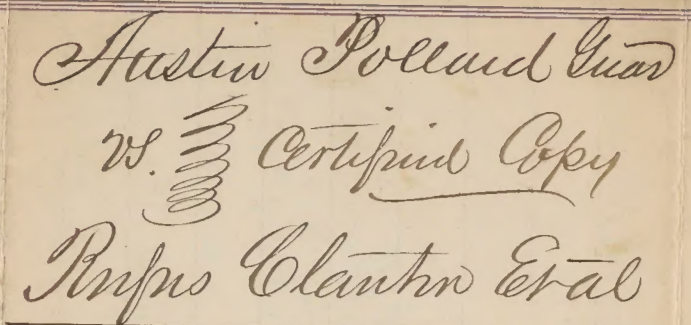 Austin Pollard Guar
vs. Certified Copy
Rufus Clanton Et al